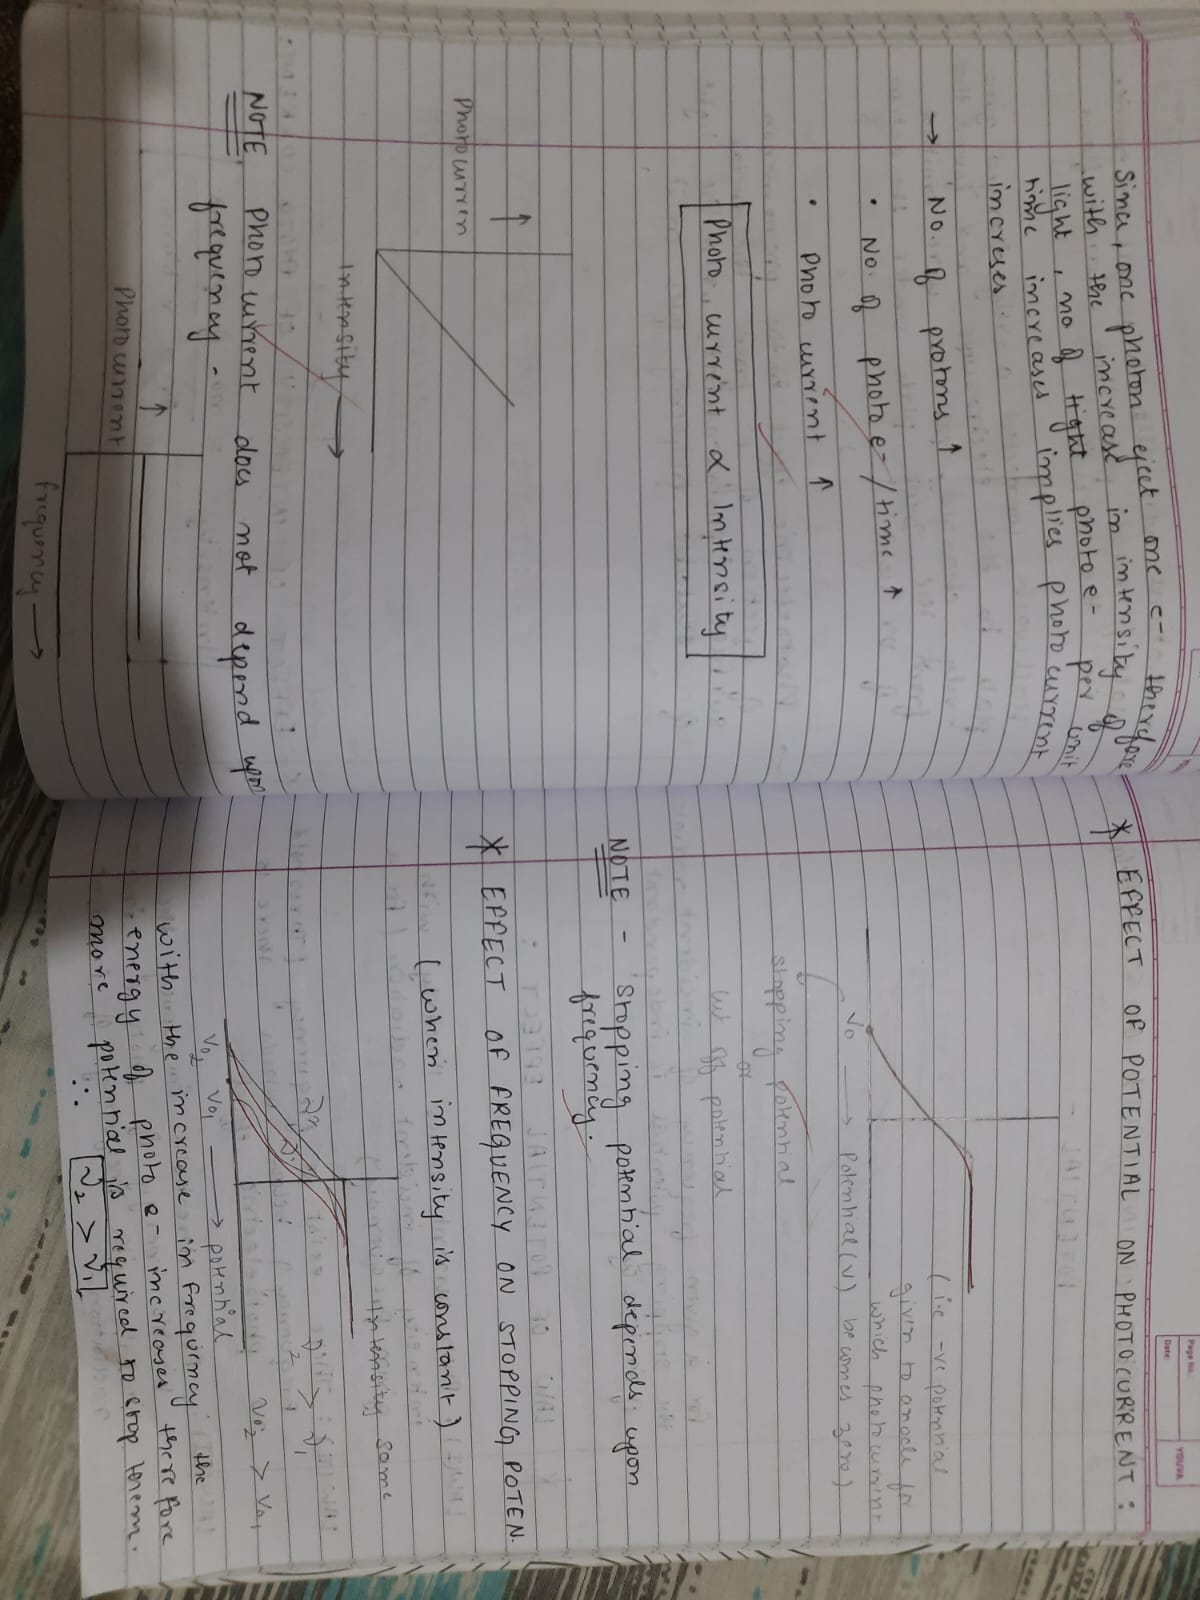 Since, one photon eject one e- therefore
with the increase in intensity of
light, no of tight photo e- per unit
time increases implies photo current
increses.
→ No. of protons ↑
• No. of photo e- / time ↑
• Photo current ↑
Photo current ∝ Intensity
↑
Photocurren
Intensity →
NOTE Photocurrent does not depend upon
frequency -
↑
Photocurrent
frequency →
Page No.
Date:
YOUVA
* EFFECT OF POTENTIAL ON PHOTOCURRENT :
(i.e -ve potential
given to anode for
which photocurrent
V0 → Potential (V) becomes zero)
Stopping potential
or
cut off potential
NOTE - Stopping potential depends upon
frequency.
* EFFECT OF FREQUENCY ON STOPPING POTEN.
(when intensity is constant)
Intensity same
ν2 ν1
ν2 > ν1
V02 > V01
V02 V01 → potential
with the increase in frequency the
energy of photo e- increases therefore
more potential is required to stop them.
∴ ν2 > ν1